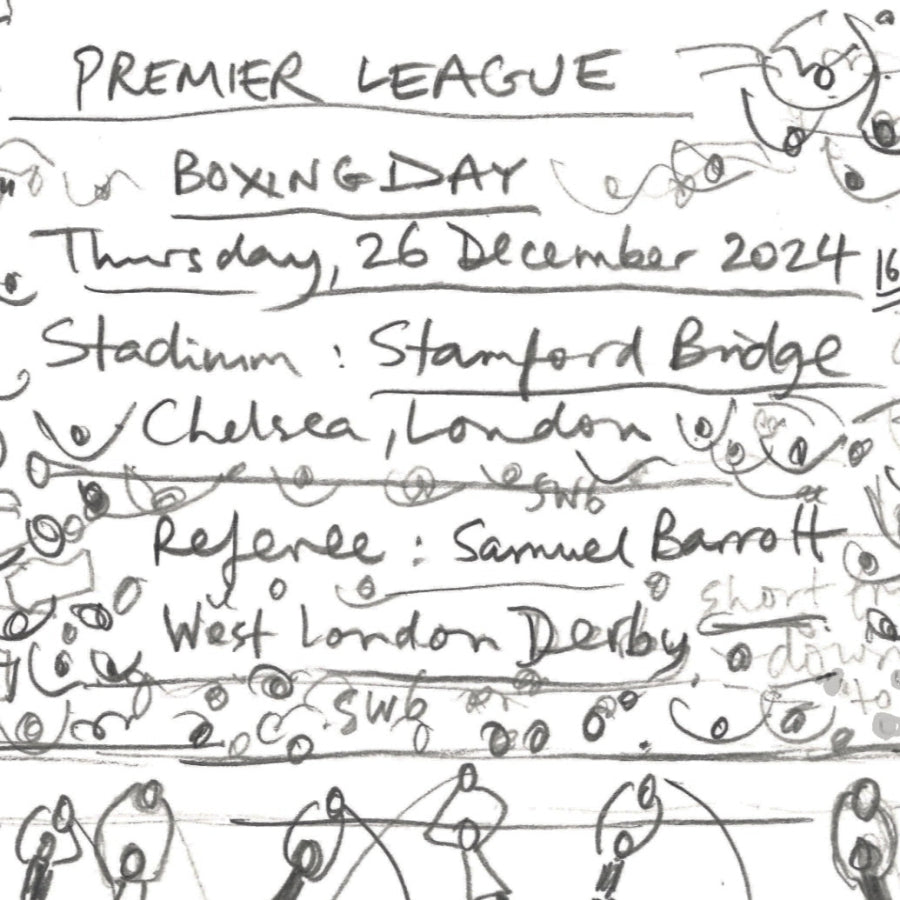 PREMIER LEAGUE
BOXING DAY
Thursday, 26 December 2024
16
Stadium : Stamford Bridge
Chelsea, London
SW6
Referee : Samuel Barrott
short
West London Derby
down
to
SW6